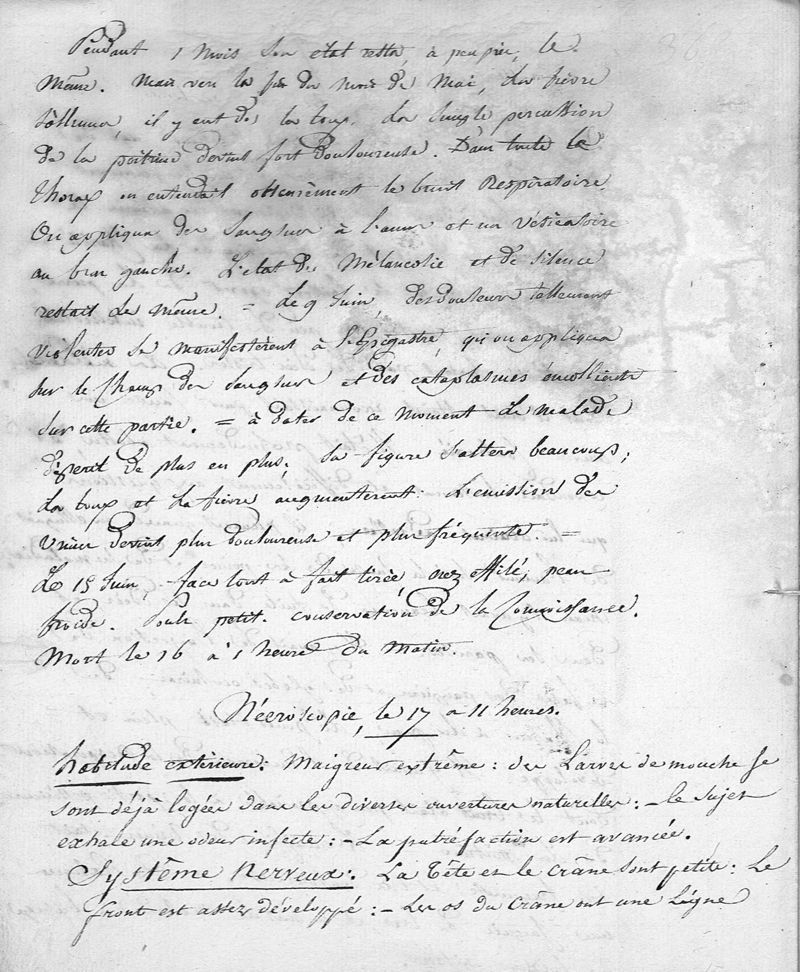 Pendant 1 mois son état resta, à peu près, le
même. Mais vers la fin du mois de Mai, la fièvre
s'alluma, il y eut de la toux. La simple percussion
de la poitrine devint fort douloureuse. Dans toute le
thorax on entendait obscurément le bruit Respiratoire.
On appliqua des sangsues à l'anus et un vésicatoire
au bras gauche. L'état de Mélancolie et de silence
restait le même. = Le 9 Juin, des douleurs tellement
violentes se manifestèrent à l'Epigastre, qu'on appliqua
sur le champ des sangsues et des cataplasmes émollients
sur cette partie. = à dater de ce moment le malade
dépérit de plus en plus; sa figure s'altera beaucoup;
la toux et la fièvre augmenterent: L'émission des
urines devint plus douloureuse et plus fréquente. =
Le 15 Juin, face tout à fait tirée, nez effilé, peau
froide. Pouls petit. conservation de la Connaissance.
Mort le 16 à 1 heure du matin.
Nécroscopie, le 17 a 11 heures.
habitude extérieure: Maigreur extrême: des Larves de mouche se
sont déjà logées dans les diverses ouvertures naturelles: - le sujet
exhale une odeur infecte: - La putréfaction est avancée.
Système Nerveux. La Tête et le crâne sont petits: Le
front est assez développé: - Les os du Crâne ont une Ligne